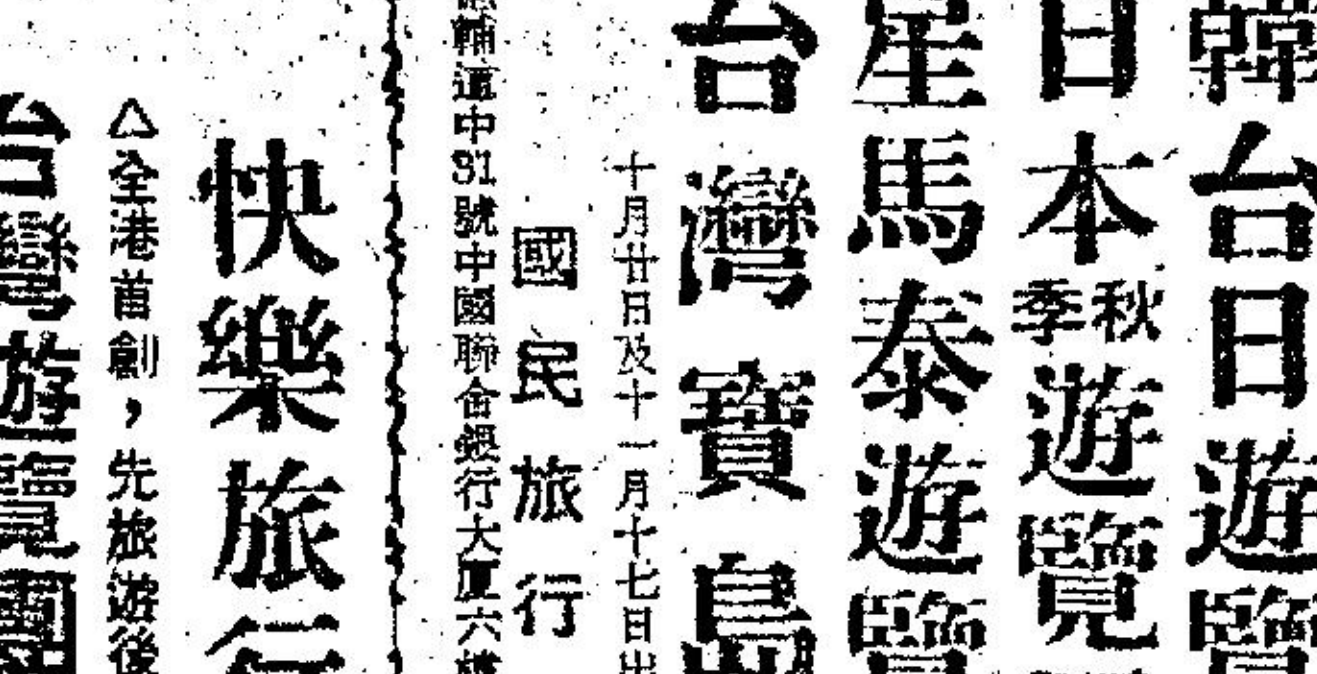 韓台日遊覽
日本秋季遊覽
星馬泰遊覽
台灣寶島
十月廿日及十一月十七日出
國民旅行
輔道中81號中國聯合銀行大厦六樓
快樂旅行
△全港首創，先旅遊後
台灣遊覽團